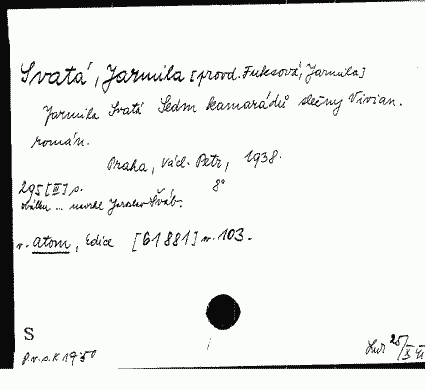 Svatá, Jarmila [provd. Fuksová, Jarmila]
Jarmila Svatá Sedm kamarádů slečny Vivian.
román.
Praha, Václ. Petr, 1938.
295 [III] s. 8°
obálku ... navrhl Jaroslav Šváb.
v. atom, Edice [61881] sv. 103.
S
P.v.s.k 1950
25/